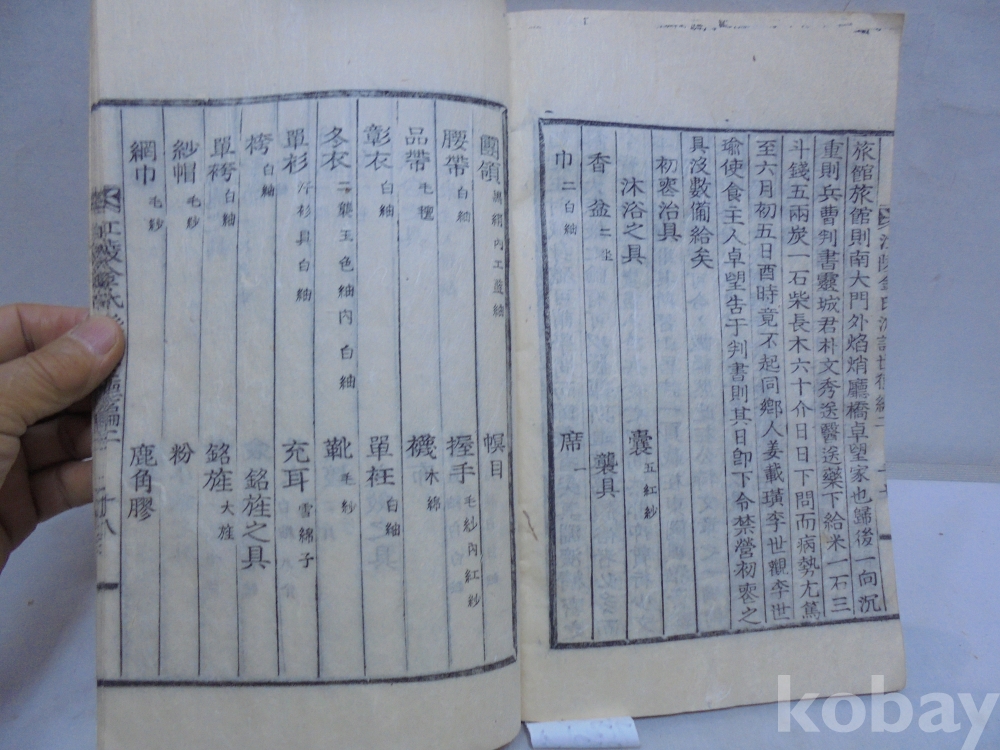 旅館旅館則南大門外焰焇廳橋卓望家也歸後一向沉
重則兵曹判書靈城君朴文秀送醫送藥下給米一石三
斗錢五兩炭一石柴長木六十介日日下問而病勢尤篤
至六月初五日酉時竟不起同鄕人姜載璜李世觀李世
瑜使食主人卓望告于判書則其日卽下令禁營初
之
具沒數備給矣
初
治具
沐浴之具 囊 五紅紗
香盆 二坐 襲具
巾 二白紬 席 一
團領
幎目
腰帶 白紬 握手 毛紗內紅紗
品帶 毛
 木綿
彰衣 白紬 單
白紬
冬衣 二襲玉色紬內白紬 靴 毛紗
單衫 汗衫具白紬 充耳 雪綿子
袴 白紬 銘旌之具
單袴 白紬 銘旌 大旌
紗帽 毛紗 粉
網巾 毛紗 鹿角膠
十八
kobay